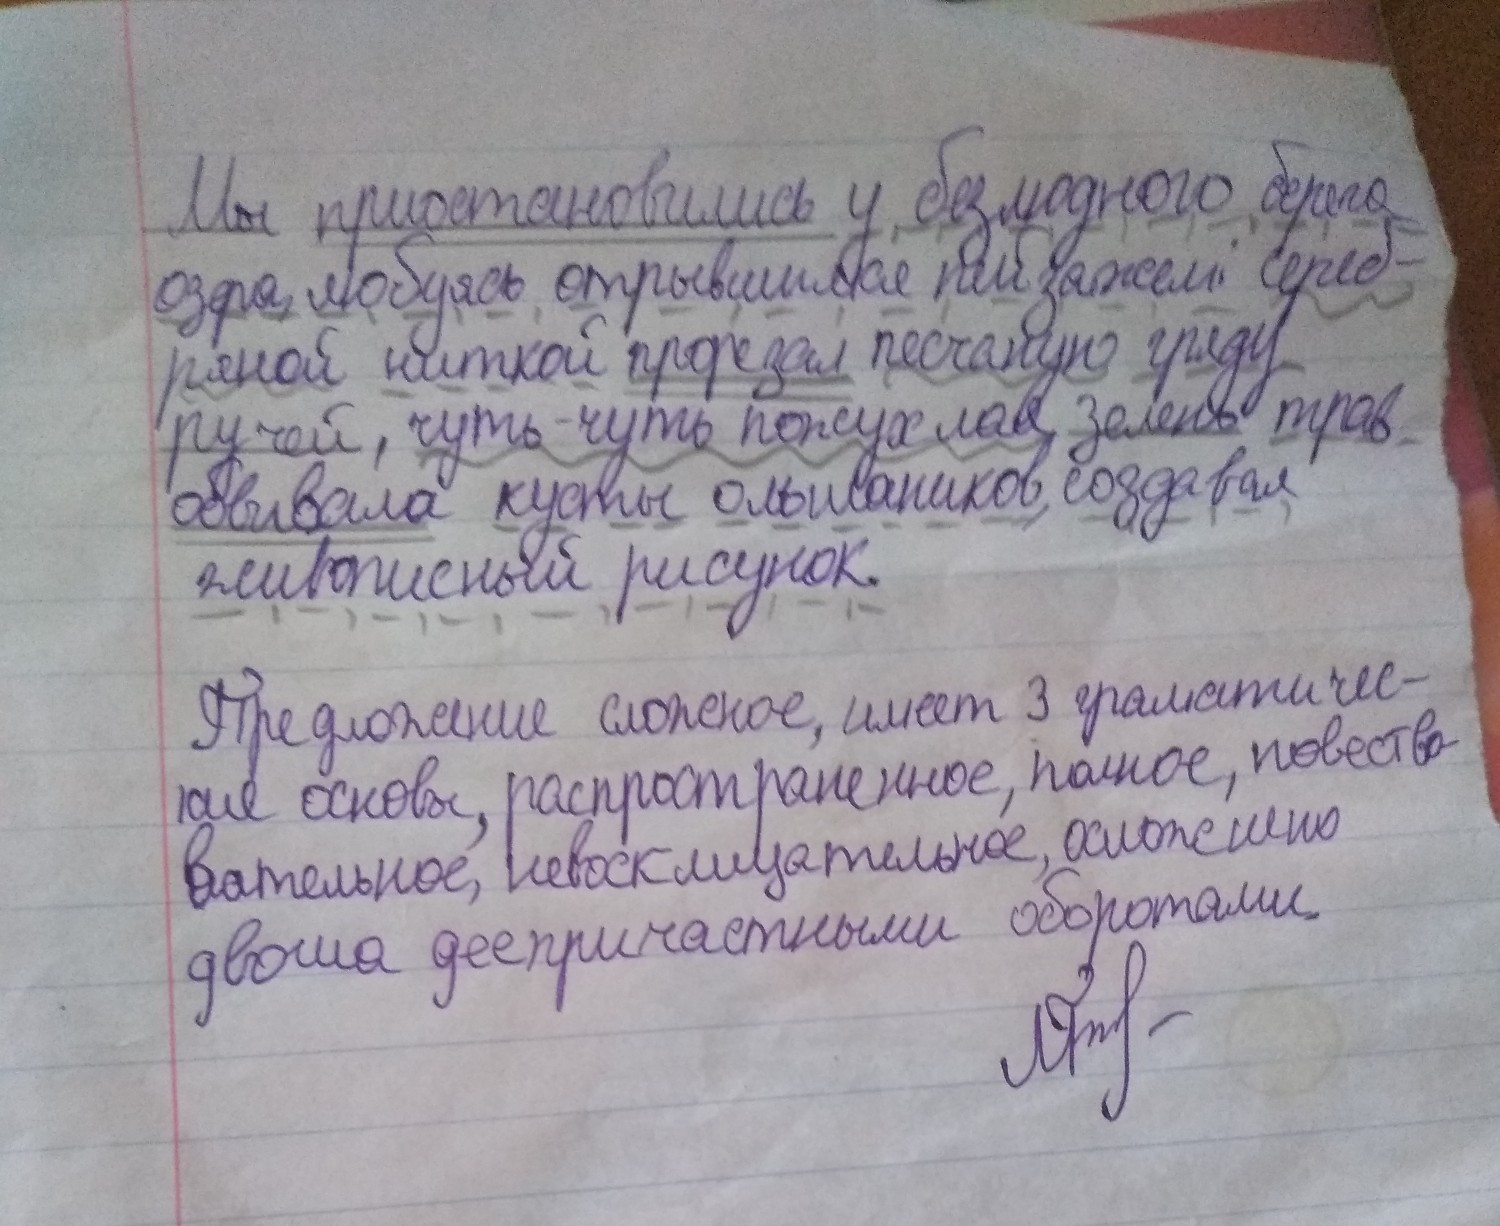 Мы приостановились у безмодного берега
озера, любуясь отрывшимся пейзажем: сереб-
ряной ниткой прорезал песчаную гряду
ручей, чуть-чуть пожухлая зелень трав
обвивала кусты ольшаников, создавая
живописный рисунок.
Предложение сложное, имеет 3 граматичес-
кие основы, распространенное, полное, повество-
вательное, невосклицательное, осложнено
двумя деепричастными оборотами.